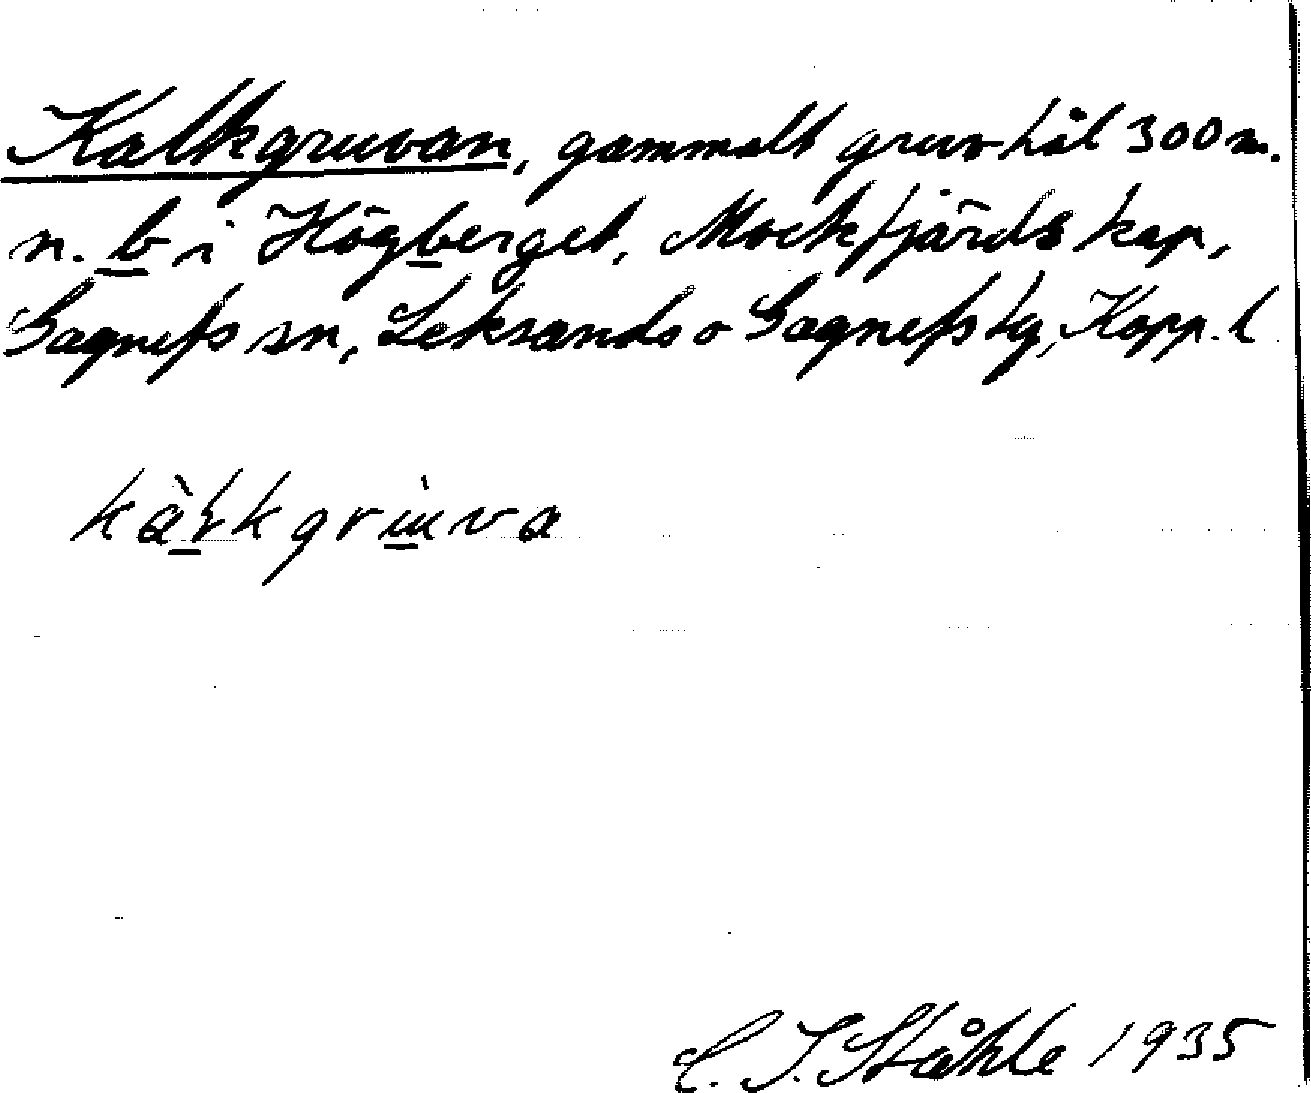 Kalkgruvan, gammalt gruvhål 300 m.
n. b i Högberget, Mockfjärds kap,
Gagnefs sn, Leksands o Gagnefs tg, Kopp. l
kàlkgrùva
C. I. Ståhle 1935